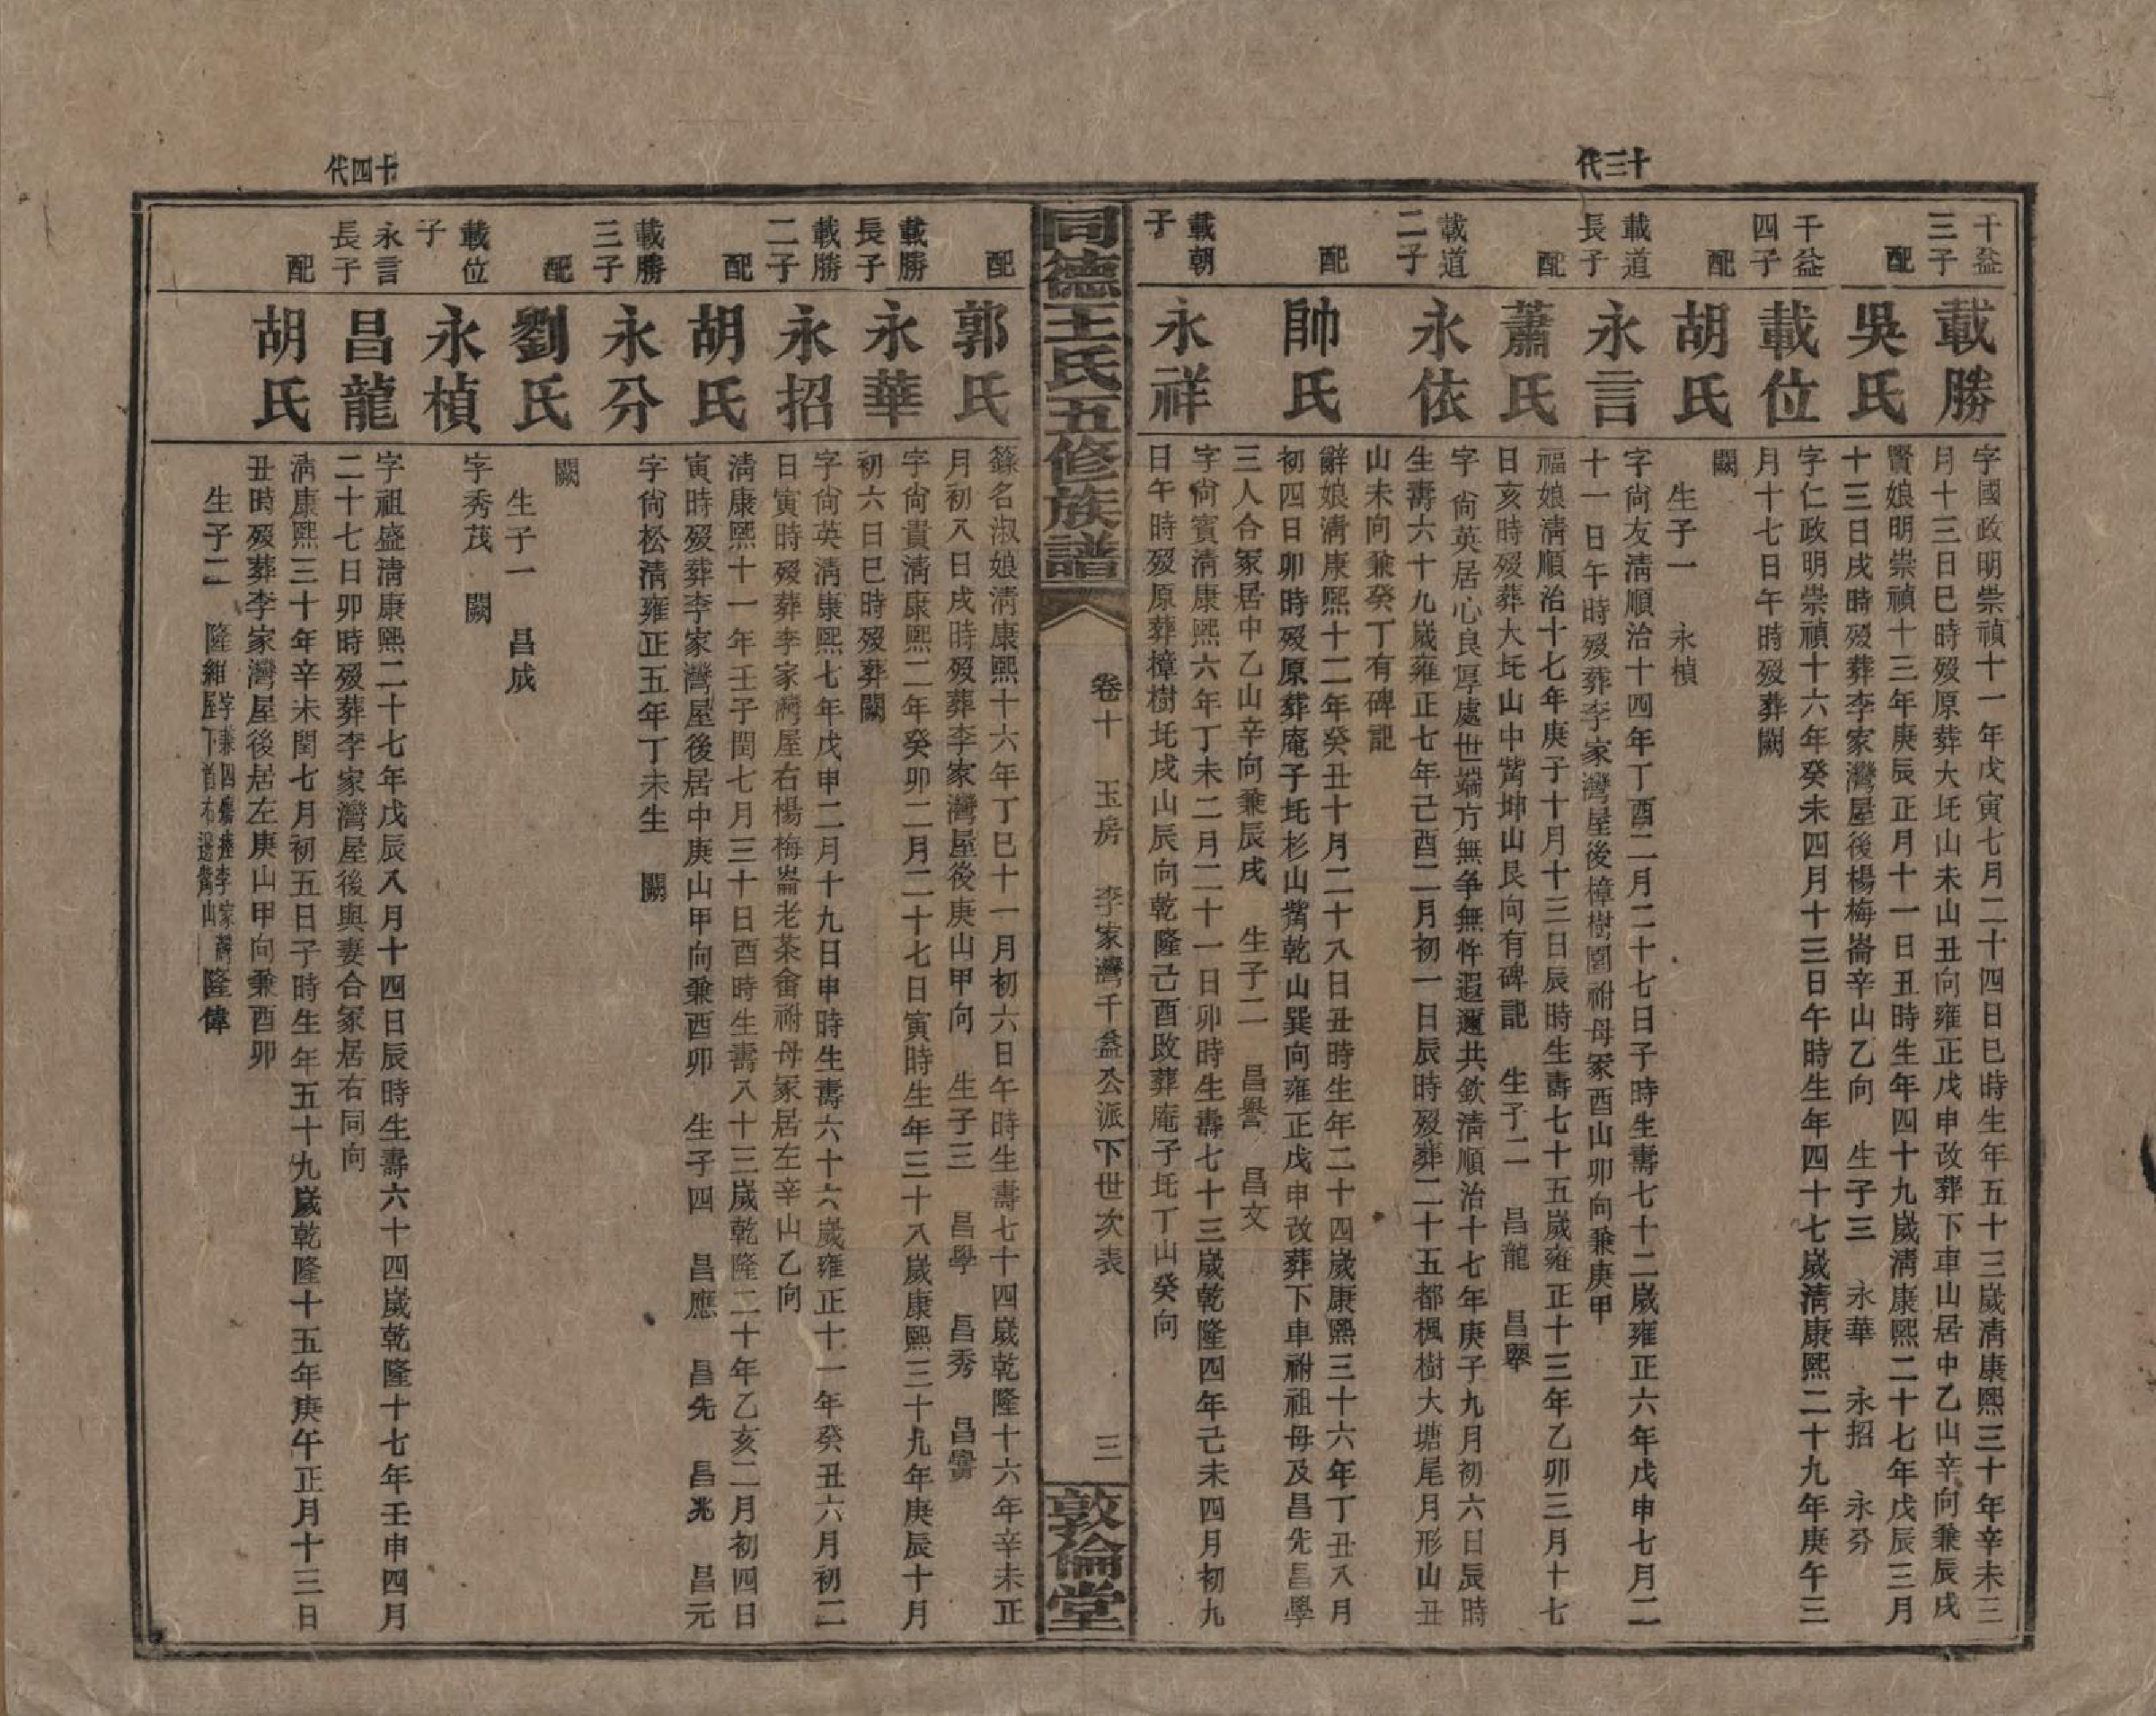 十三代
千益三子
載勝
字國政明崇禎十一年戊寅七月二十四日巳時生年五十三歲清康熙三十年辛未三
月十三日巳時歿原葬大坵山未山丑向雍正戊申改葬下車山居中乙山辛向兼辰戌
配
吳氏
賢娘明崇禎十三年庚辰正月十一日丑時生年四十九歲清康熙二十七年戊辰三月
十三日戌時歿葬李家灣屋後楊梅崙辛山乙向 生子三 永華 永招 永芬
千益四子
載位
字仁政明崇禎十六年癸未四月十三日午時生年四十七歲清康熙二十九年庚午三
月十七日午時歿葬闕
配
胡氏
闕
生子一 永楨
載道長子
永言
字尙友清順治十四年丁酉二月二十七日子時生壽七十二歲雍正六年戊申七月二
十一日午時歿葬李家灣屋後樟樹園祔母冢酉山卯向兼庚甲
配
蕭氏
福娘清順治十七年庚子十月十三日辰時生壽七十五歲雍正十三年乙卯三月十七
日亥時歿葬大坵山中嘴坤山艮向有碑記 生子二 昌龍 昌翠
載道二子
永依
字尙英居心良厚處世端方無爭無忤遐邇共欽清順治十七年庚子九月初六日辰時
生壽六十九歲雍正七年己酉二月初一日辰時歿葬二十五都楓樹大塘尾月形山丑
山未向兼癸丁有碑記
配
帥氏
辭娘清康熙十二年癸丑十月二十八日丑時生年二十四歲康熙三十六年丁丑八月
初四日卯時歿原葬庵子坵杉山嘴乾山巽向雍正戊申改葬下車祔祖母及昌先昌學
三人合冢居中乙山辛向兼辰戌 生子二 昌譽 昌文
載朝子
永祥
字尙賓清康熙六年丁未二月二十一日卯時生壽七十三歲乾隆四年己未四月初九
日午時歿原葬樟樹坵戌山辰向乾隆己酉改葬庵子坵丁山癸向
同德王氏五修族譜
卷十 玉房 李家灣千益公派下世次表 三
敦倫堂
配
郭氏
篠名淑娘清康熙十六年丁巳十一月初六日午時生壽七十四歲乾隆十六年辛未正
月初八日戌時歿葬李家灣屋後庚山甲向 生子三 昌學 昌秀 昌
載勝長子
永華
字尙貴清康熙二年癸卯二月二十七日寅時生年三十八歲康熙三十九年庚辰十月
初六日巳時歿葬闕
載勝二子
永招
字尙英清康熙七年戊申二月十九日申時生壽六十六歲雍正十一年癸丑六月初二
日寅時歿葬李家灣屋右楊梅崙老茶畬祔母冢居左辛山乙向
配
胡氏
清康熙十一年壬子閏七月三十日酉時生壽八十三歲乾隆二十年乙亥二月初四日
寅時歿葬李家灣屋後居中庚山甲向兼酉卯 生子四 昌應 昌先 昌兆 昌元
載勝三子
永芬
字尙松清雍正五年丁未生 闕
配
劉氏
闕
生子一 昌成
載位子
永楨
字秀茂 闕
十四代
永言長子
昌龍
字祖盛清康熙二十七年戊辰八月十四日辰時生壽六十四歲乾隆十七年壬申四月
二十七日卯時歿葬李家灣屋後與妻合冢居右同向
配
胡氏
清康熙三十年辛未閏七月初五日子時生年五十九歲乾隆十五年庚午正月十三日
丑時歿葬李家灣屋後居左庚山甲向兼酉卯
生子二 隆維 字兼四殤塟李家灣屋下首右邊嘴山 隆偉